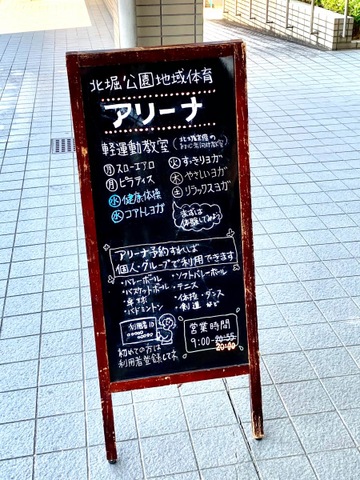 北堀公園地域体育
アリーナ
軽運動教室
月 スローエアロ
月 ピラティス
水 健康体操
水 コアトレヨガ
火 すっきりヨガ
木 やさしいヨガ
土 リラックスヨガ
まずは
体験してみよう
アリーナ予約すれば
個人・グループで利用できます
・バレーボール
・バスケットボール
・卓球
・バドミントン
・ソフトバレーボール
・テニス
・体操・ダンス
・剣道 など
利用者ID
初めての方は
利用者登録してネ
営業時間
9:00-20:55
20:00